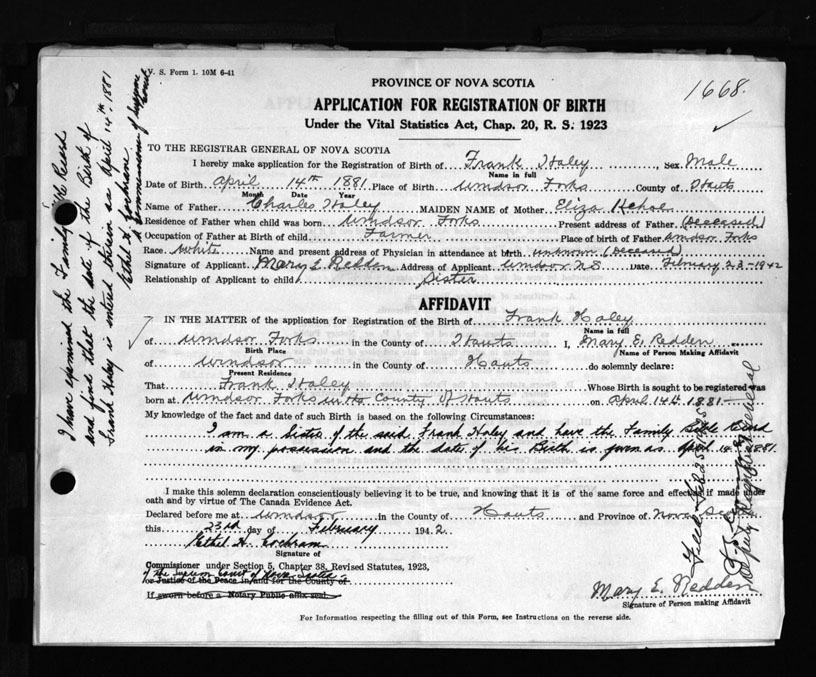 V. S. Form 1. 10M 6-41
1668.
PROVINCE OF NOVA SCOTIA
APPLICATION FOR REGISTRATION OF BIRTH
Under the Vital Statistics Act, Chap. 20, R. S. 1923
TO THE REGISTRAR GENERAL OF NOVA SCOTIA
I hereby make application for the Registration of Birth of Frank Haley Sex Male
Name in full
Date of Birth April 14th 1881 Place of Birth Windsor Forks County of Hants
Month Date Year
Name of Father Charles Haley MAIDEN NAME of Mother Eliza Kehoe
Residence of Father when child was born Windsor Forks Present address of Father (Deceased)
Occupation of Father at Birth of child Farmer Place of birth of Father Windsor Forks
Race White Name and present address of Physician in attendance at birth unknown (Deceased)
Signature of Applicant Mary E Redden Address of Applicant Windsor N.S Date February 23-1942
Relationship of Applicant to child Sister
AFFIDAVIT
IN THE MATTER of the application for Registration of the Birth of Frank Haley
Name in full
of Windsor Forks in the County of Hants I, Mary E. Redden
Birth Place Name of Person Making Affidavit
of Windsor in the County of Hants do solemnly declare:
Present Residence
That Frank Haley Whose Birth is sought to be registered was
born at Windsor Forks in the County of Hants on April 14th 1881
My knowledge of the fact and date of such Birth is based on the following Circumstances:
I am a sister of the said Frank Haley and have the Family Bible Record
in my possession and the date of his Birth is given as April 14th 1881.
I make this solemn declaration conscientiously believing it to be true, and knowing that it is of the same force and effect as if made under
oath and by virtue of The Canada Evidence Act.
Declared before me at Windsor in the County of Hants and Province of Nova Scotia
this 23rd day of February 1942.
Ethel H. Cochran
Signature of
Commissioner under Section 5, Chapter 38, Revised Statutes, 1923,
of the Supreme Court of Nova Scotia
or Justice of the Peace in/and for the County of
If sworn before a Notary Public affix seal
Mary E. Redden
Signature of Person making Affidavit
For Information respecting the filling out of this Form, see Instructions on the reverse side.
I have examined the Family Record
and find that the date of the Birth of
Frank Haley is entered therein as April 14th 1881
Ethel H. Cochran
A Commissioner of Supreme Court
Deputy Registrar General